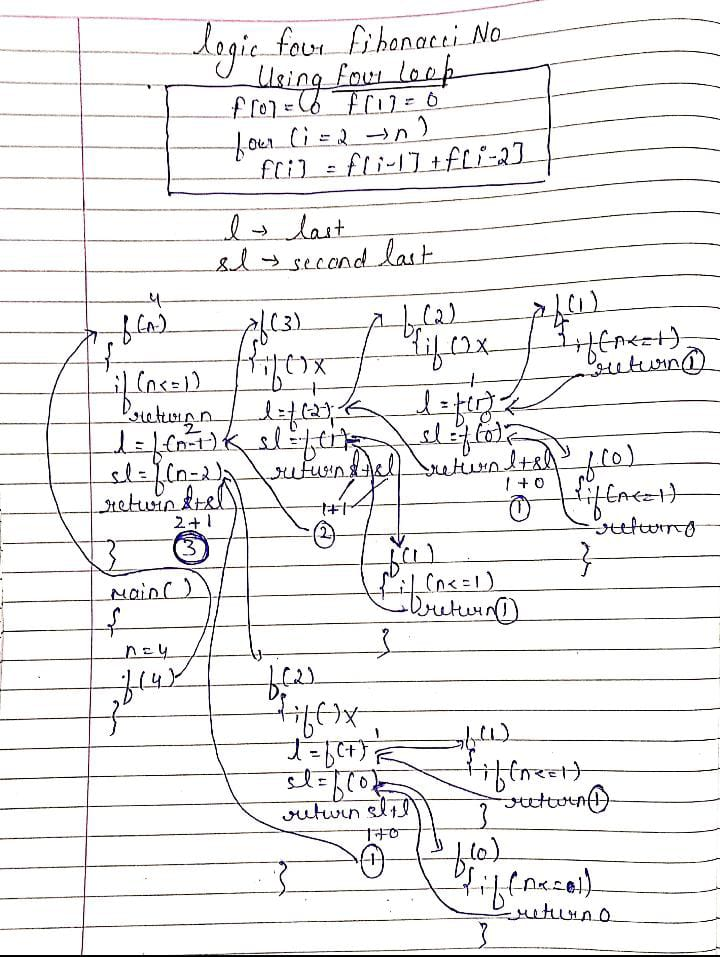 logic four Fibonacci No
Using four loop
f[0]=0 f[1]=0
four (i=2 → n)
f[i] = f[i-1]+f[i-2]
l → last
sl → second last
4
f(n)
{
if(n<=1)
return n
2
l=f(n-1)
sl=f(n-2)
return l+sl
2+1
3
}
main()
{
n=4
f(4)
}
f(3)
{ if()x
1
l=f(2)
sl=f(1)
return l+sl
1+1
2
f(2)
{ if()x
1
l=f(1)
sl=f(0)
return l+sl
1+0
1
f(1)
{ if(n<=1)
return 1
f(0)
{ if(n<=1)
return 0
}
f(1)
{ if(n<=1)
return 1
}
f(2)
{ if()x
1
l=f(1)
sl=f(0)
return sl+l
1+0
1
}
f(1)
{ if(n<=1)
return 1
}
f(0)
{ if(n<=1)
return 0
}